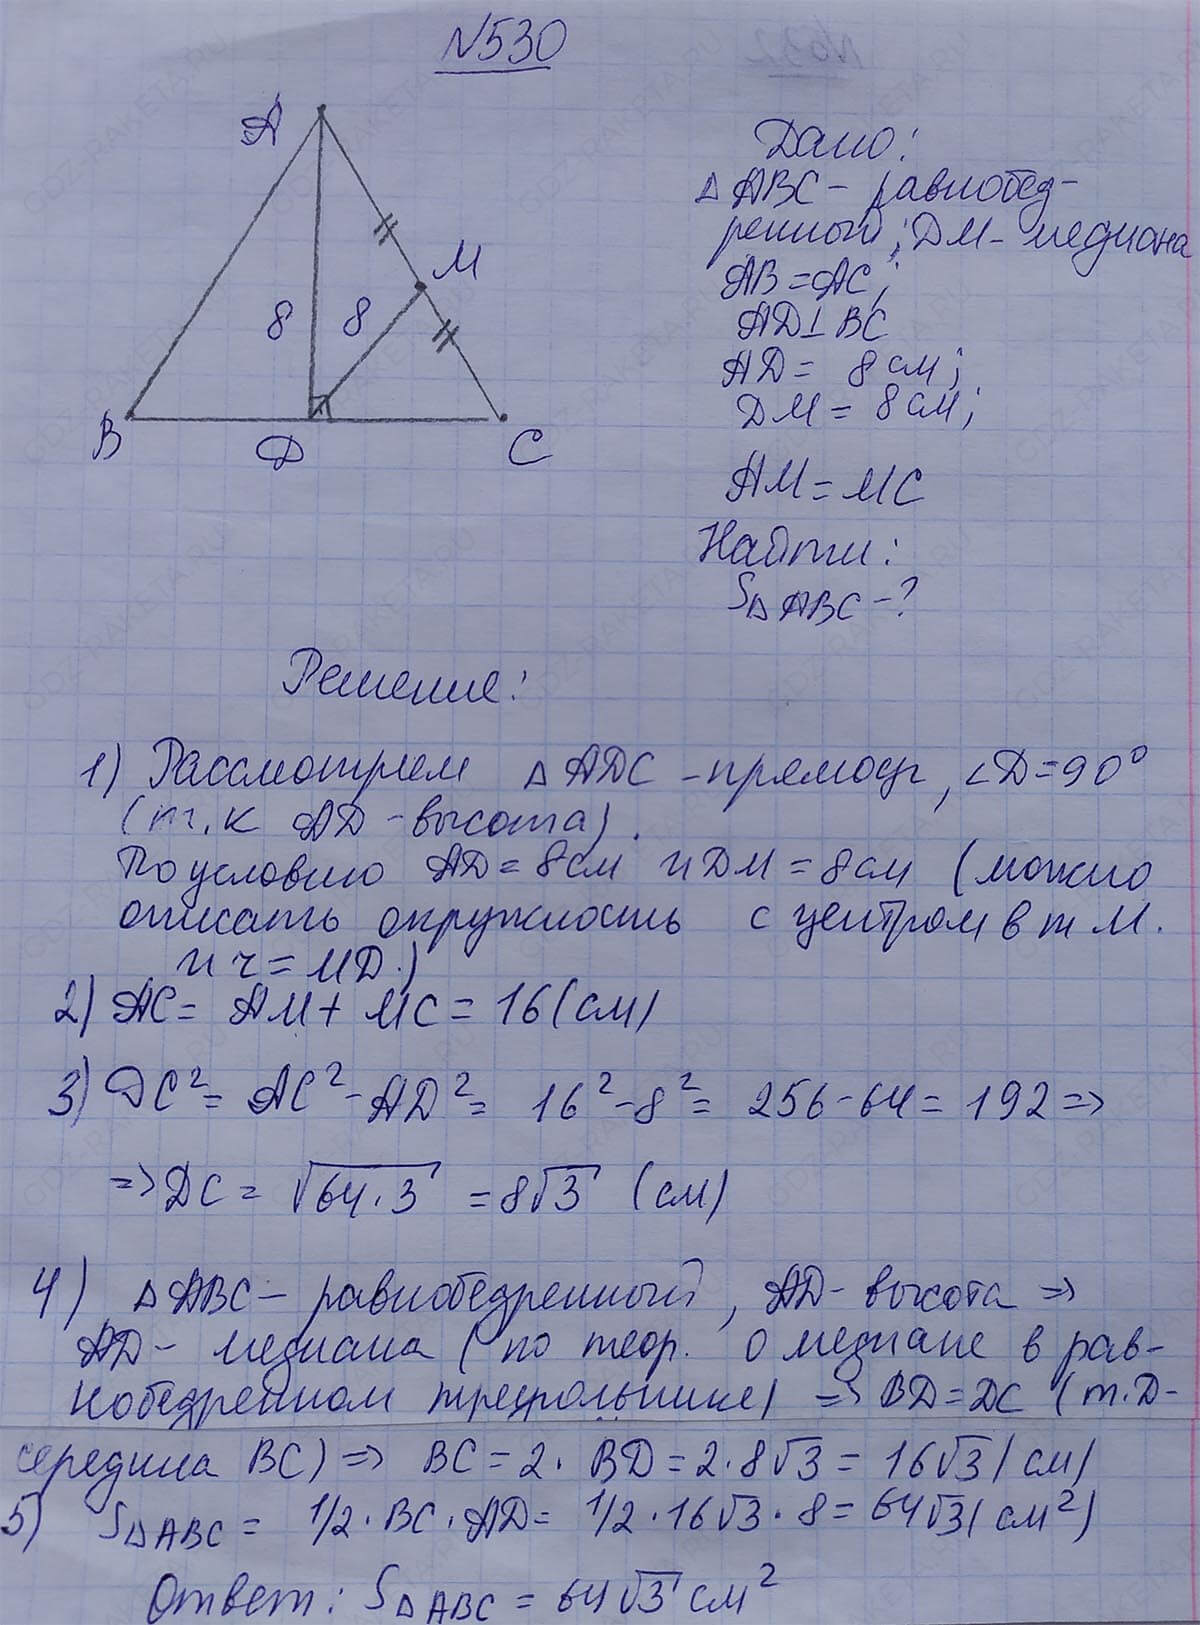 №530
A
M
8 8
B
D
C
Дано:
△ABC – равнобед-
ренный; DM – медиана
AB = AC;
AD⊥BC
AD = 8 см;
DM = 8 см;
AM = MC
Найти:
S△ABC – ?
Решение:
1) Рассмотрим △ADC – прямоуг, ∠D=90°
(т.к AD – высота).
По условию AD = 8 см и DM = 8 см (можно
описать окружность с центром в т M.
и r = MD.)
2) AC = AM + MC = 16 (см)
3) DC² = AC² – AD² = 16² – 8² = 256 – 64 = 192 =>
=> DC = √64·3 = 8√3 (см)
4) △ABC – равнобедренный, AD – высота =>
AD – медиана (по теор. о медиане в рав-
нобедренном треугольнике) => BD = DC (т.D-
середина BC) => BC = 2 · BD = 2 · 8√3 = 16√3 (см)
5) S△ABC = 1/2 · BC · AD = 1/2 · 16√3 · 8 = 64√3 (см²)
Ответ: S△ABC = 64√3 см²